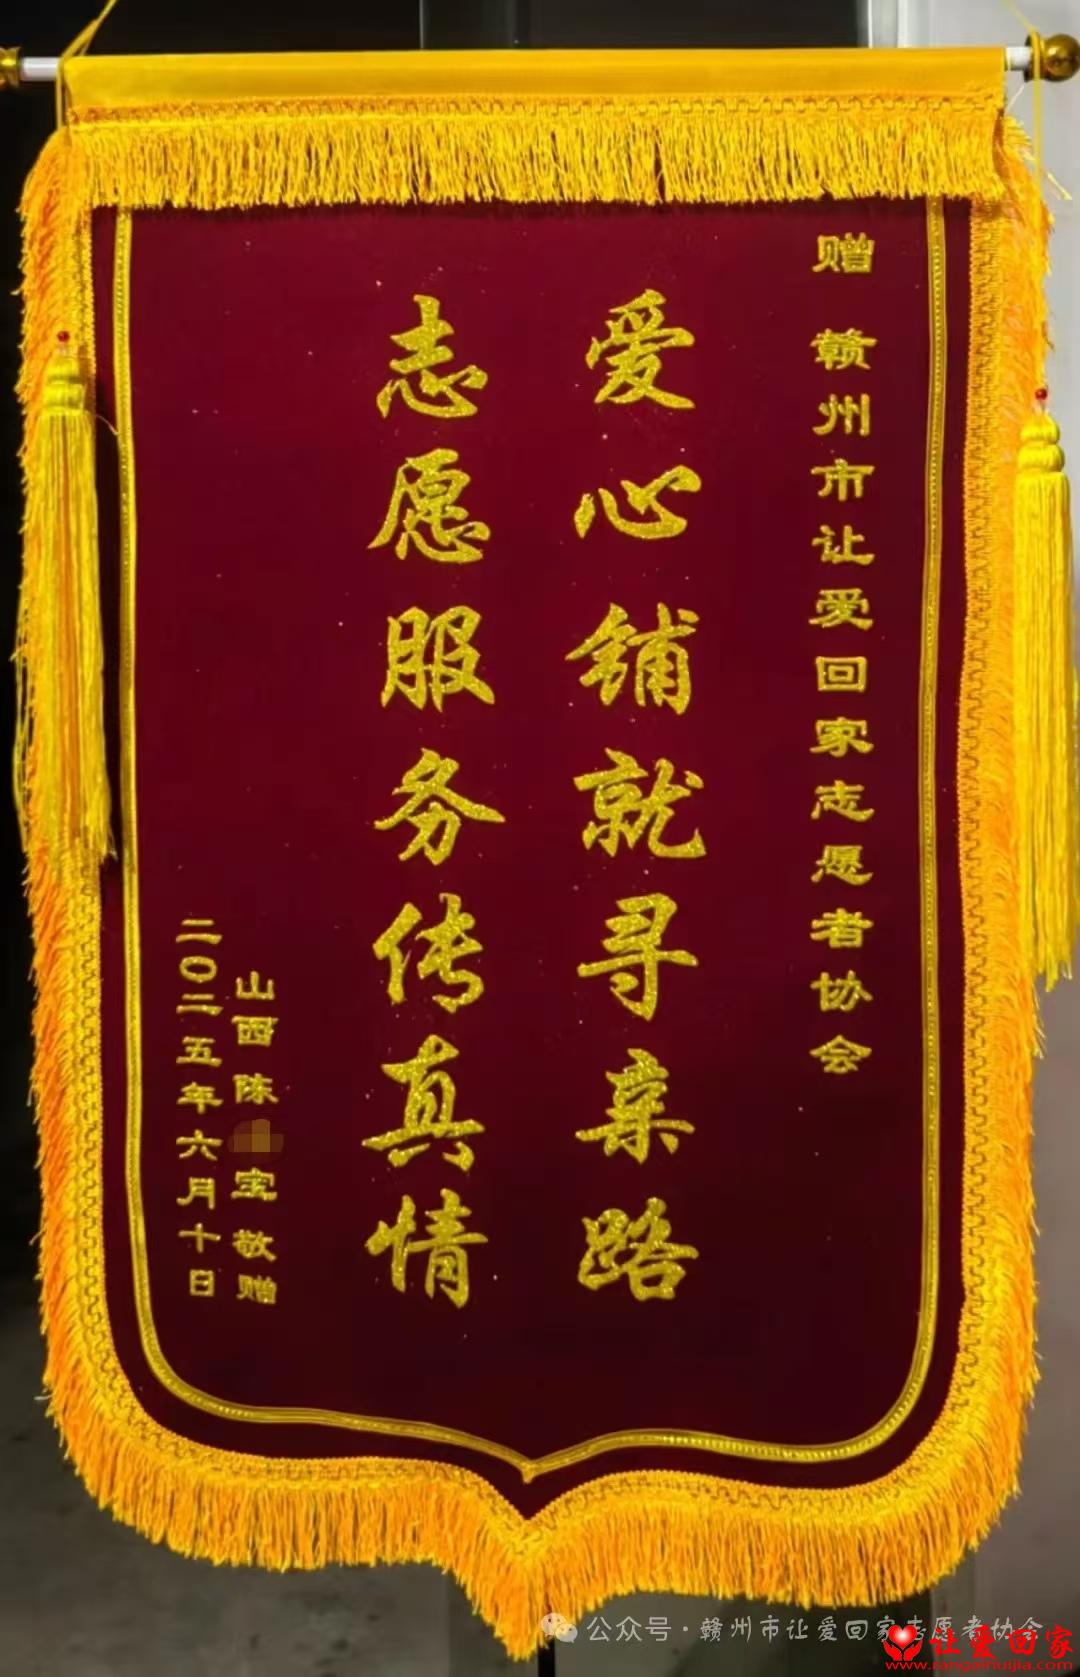 赠 赣州市让爱回家志愿者协会
爱心铺就寻亲路
志愿服务传真情
山西陈 宝敬赠
二〇二五年六月十日
公众号·赣州市让爱回家志愿者协会
让爱回家
www.rangaihuijia.com